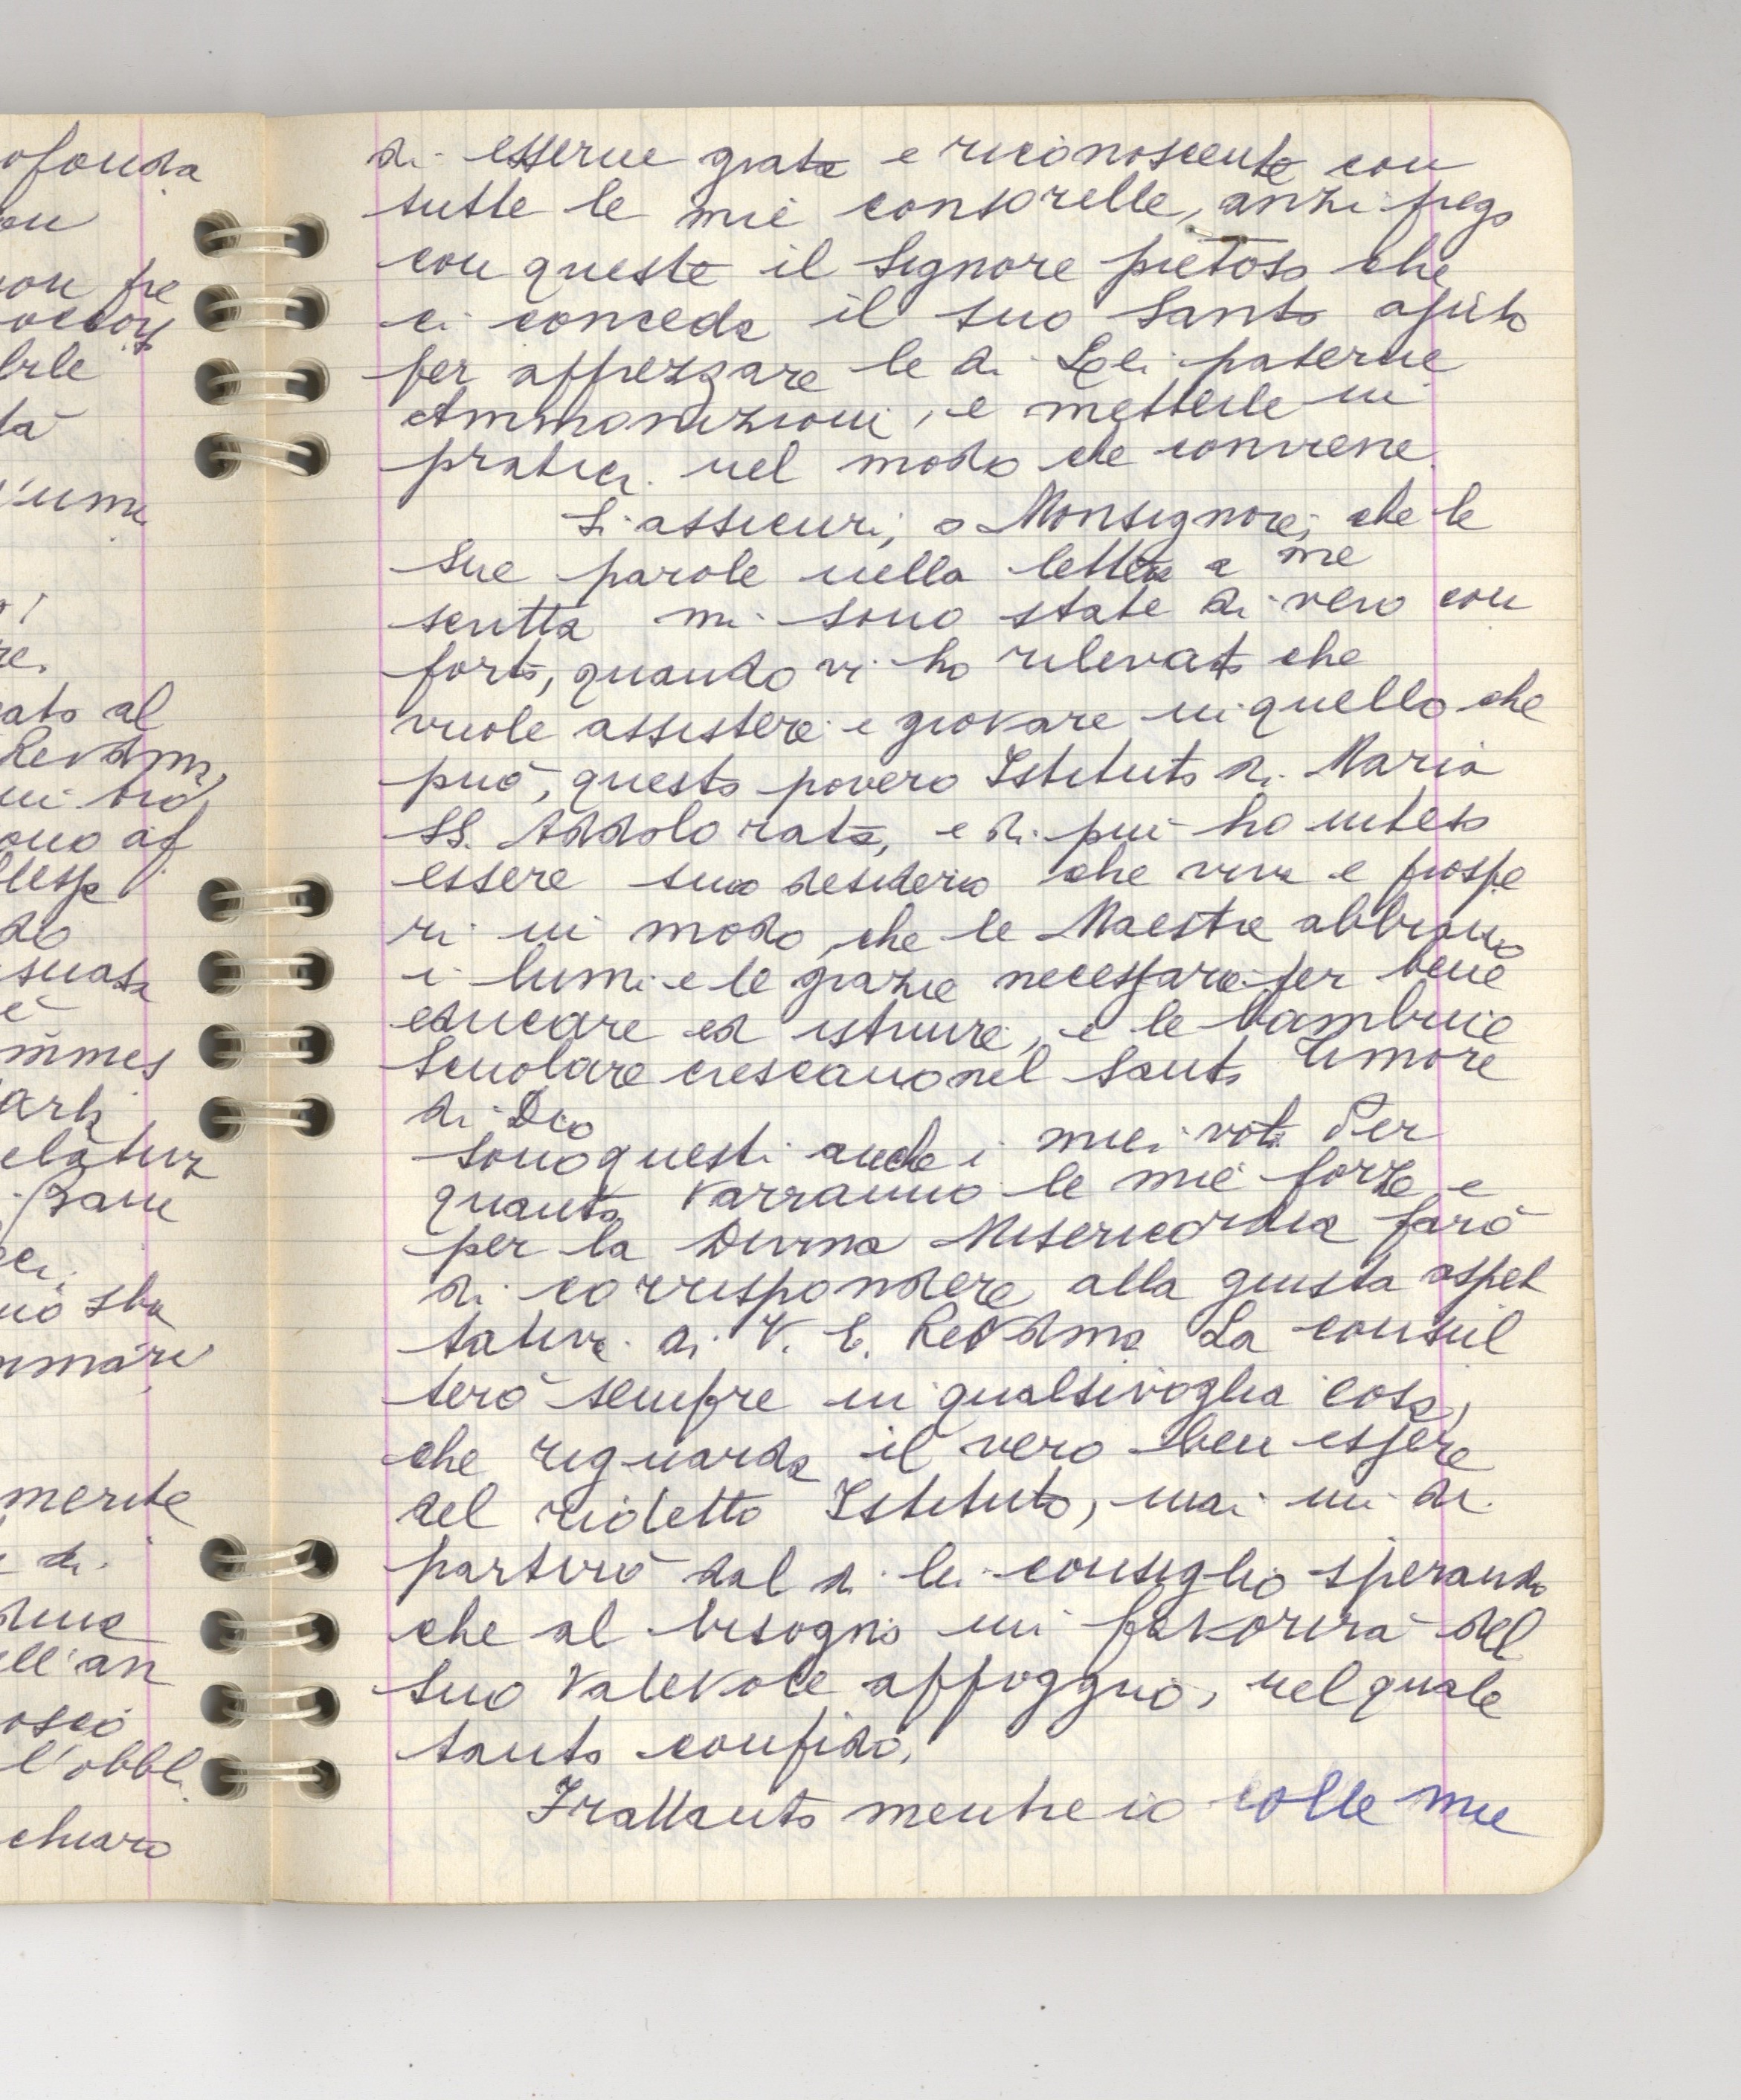 di esserne grata e riconoscente con
tutte le mie consorelle, anzi prego
con queste il Signore pietoso che
ci conceda il suo Santo ajuto
per apprezzare le di Lei paterne
Ammonizioni, e metterle in
pratica nel modo che conviene.
Si assicuri, o Monsignore, che le
Sue parole nella lettera a me
scritta mi sono state di vero con
forto, quando vi ho rilevato che
vuole assistere e giovare in quello che
può, questo povero Istituto di Maria
SS. Addolorata, e di più ho inteso
essere suo desiderio che viva e prospe
ri in modo, che le Maestre abbiano
i lumi e le grazie necessarie per bene
educare ed istruire, e le bambine
Scuolare crescano nel Santo Timore
di Dio
Sono questi anche i miei voti Per
quanto varranno le mie forze e
per la Divina Misericordia farò
di corrispondere alla giusta aspet
tativa di V. E. Revdma La consul
terò sempre in qualsivoglia cosa,
che riguarda il vero ben essere
del ridetto Istituto, mai mi di
partirò dal di lei consiglio sperando
che al bisogno mi favorirà del
Suo Valevole appoggio, nel quale
tanto confido.
Frattanto mentre io colle mie
ofonda
on
non pre
bile
tà
l'umi
re.
ato al
Revdma
ono af
do
suasa
è
immes
elatura
mmari
merite
di
ell'an
oscio
l'obbli
chiaro